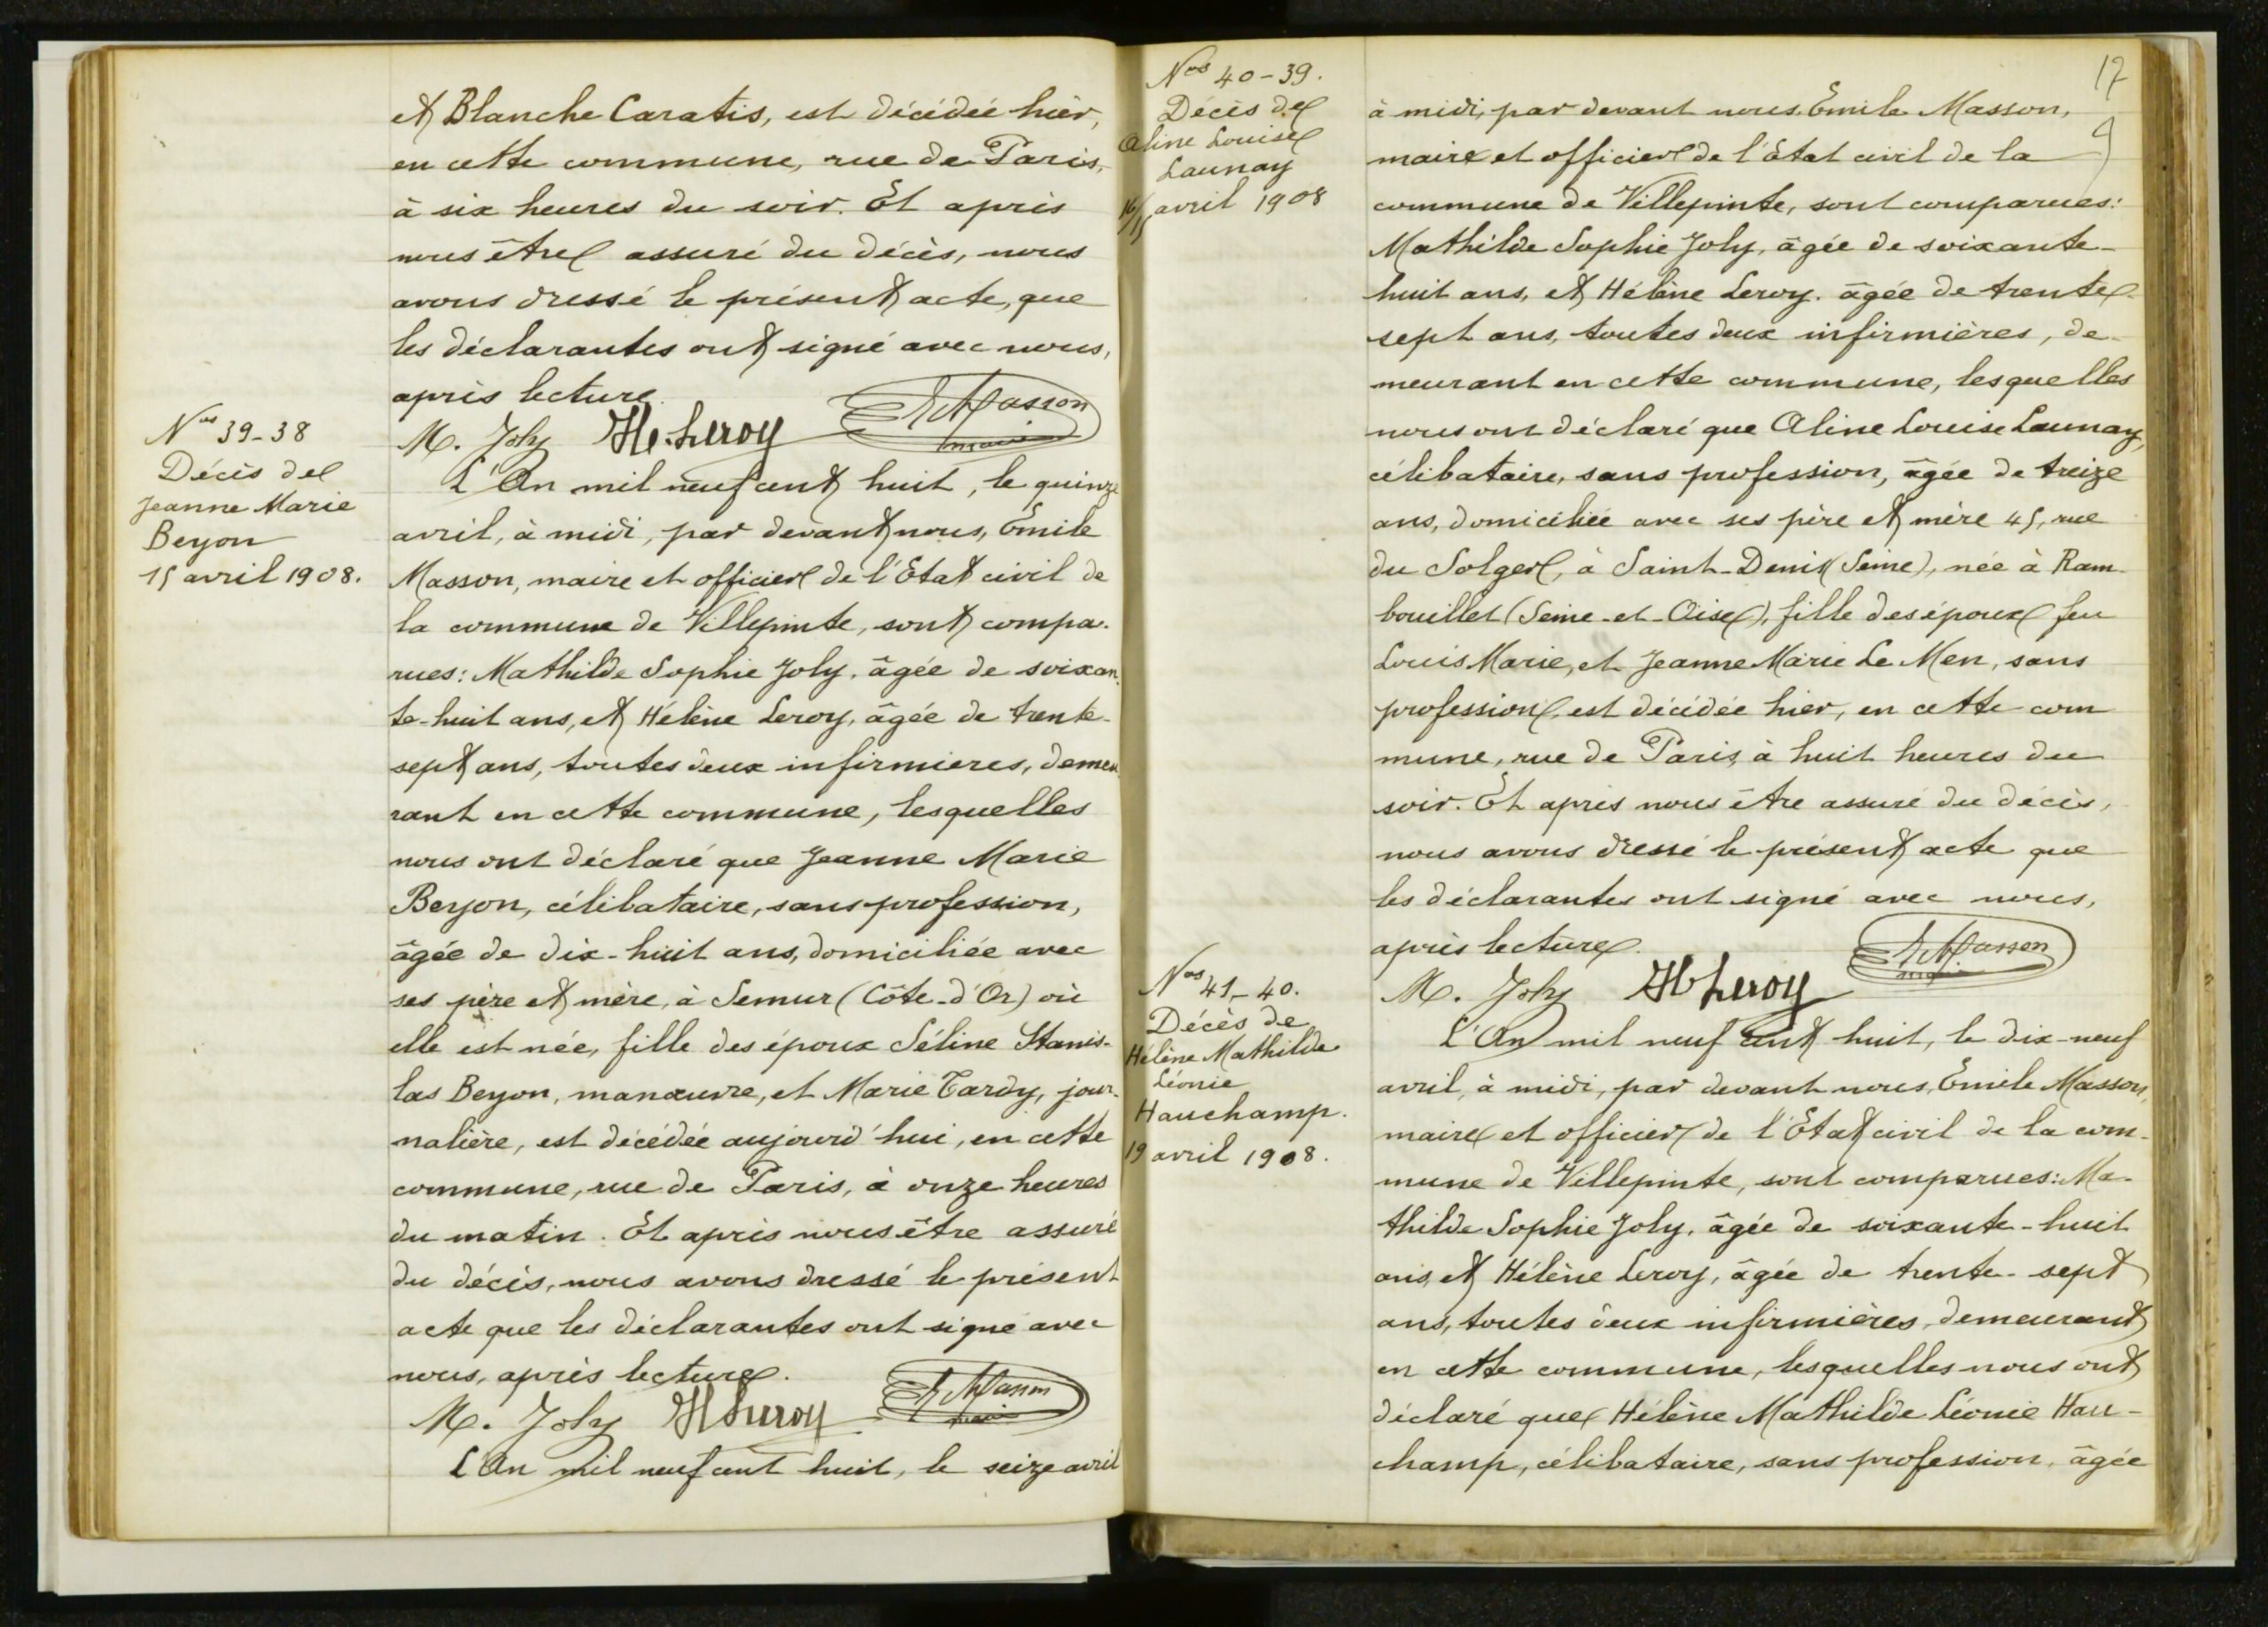 et Blanche Caratis, est décédée hier,
en cette commune, rue de Paris,
à six heures du soir. Et après
nous être assuré du décès, nous
avons dressé le présent acte, que
les déclarantes ont signé avec nous,
après lecture.
M. Joly H. Leroy E Masson
maire
Nos 39-38
Décès de
Jeanne Marie
Beyon
15 avril 1908.
L'An mil neuf cent huit, le quinze
avril, à midi, par devant nous, Émile
Masson, maire et officier de l'Etat civil de
la commune de Villepinte, sont compa-
rues: Mathilde Sophie Joly, âgée de soixan-
te-huit ans, et Hélène Leroy, âgée de trente-
sept ans, toutes deux infirmieres, demeu-
rant en cette commune, lesquelles
nous ont déclaré que Jeanne Marie
Beyon, célibataire, sans profession,
âgée de dix-huit ans, domiciliée avec
ses père et mère, à Semur (Côte-d'Or) où
elle est née, fille des époux Séline Stanis-
las Beyon, manœuvre, et Marie Tardy, jour-
nalière, est décédée aujourd'hui, en cette
commune, rue de Paris, à onze heures
du matin. Et après nous être assuré
du décès, nous avons dressé le présent
acte que les déclarantes ont signé avec
nous, après lecture.
M. Joly H Leroy E Masson
maire
L'An mil neuf cent huit, le seize avril
17
Nos 40-39.
Décès de
Aline Louise
Launay
16 avril 1908
à midi, par devant nous, Émile Masson,
maire et officier de l'État civil de la
commune de Villepinte, sont comparues:
Mathilde Sophie Joly, âgée de soixante-
huit ans, et Hélène Leroy, âgée de trente-
sept ans, toutes deux infirmières, de-
meurant en cette commune, lesquelles
nous ont déclaré que Aline Louise Launay,
célibataire, sans profession, âgée de treize
ans, domiciliée avec ses père et mère 45, rue
du Solger, à Saint-Denis (Seine), née à Ram-
bouillet (Seine-et-Oise), fille des époux feu
Louis Marie, et Jeanne Marie Le Men, sans
profession, est décédée hier, en cette com
mune, rue de Paris, à huit heures du
soir. Et après nous être assuré du décès,
nous avons dressé le présent acte que
les déclarantes ont signé avec nous,
après lecture.
M. Joly H Leroy E Masson
maire
Nos 41-40.
Décès de
Hélène Mathilde
Léonie
Hauchamp.
19 avril 1908.
L'An mil neuf cent huit, le dix-neuf
avril, à midi, par devant nous, Émile Masson,
maire et officier de l'État civil de la com-
mune de Villepinte, sont comparues: Ma-
thilde Sophie Joly, âgée de soixante-huit
ans, et Hélène Leroy, âgée de trente-sept
ans, toutes deux infirmières, demeurant
en cette commune, lesquelles nous ont
déclaré que Hélène Mathilde Léonie Hau-
champ, célibataire, sans profession, âgée